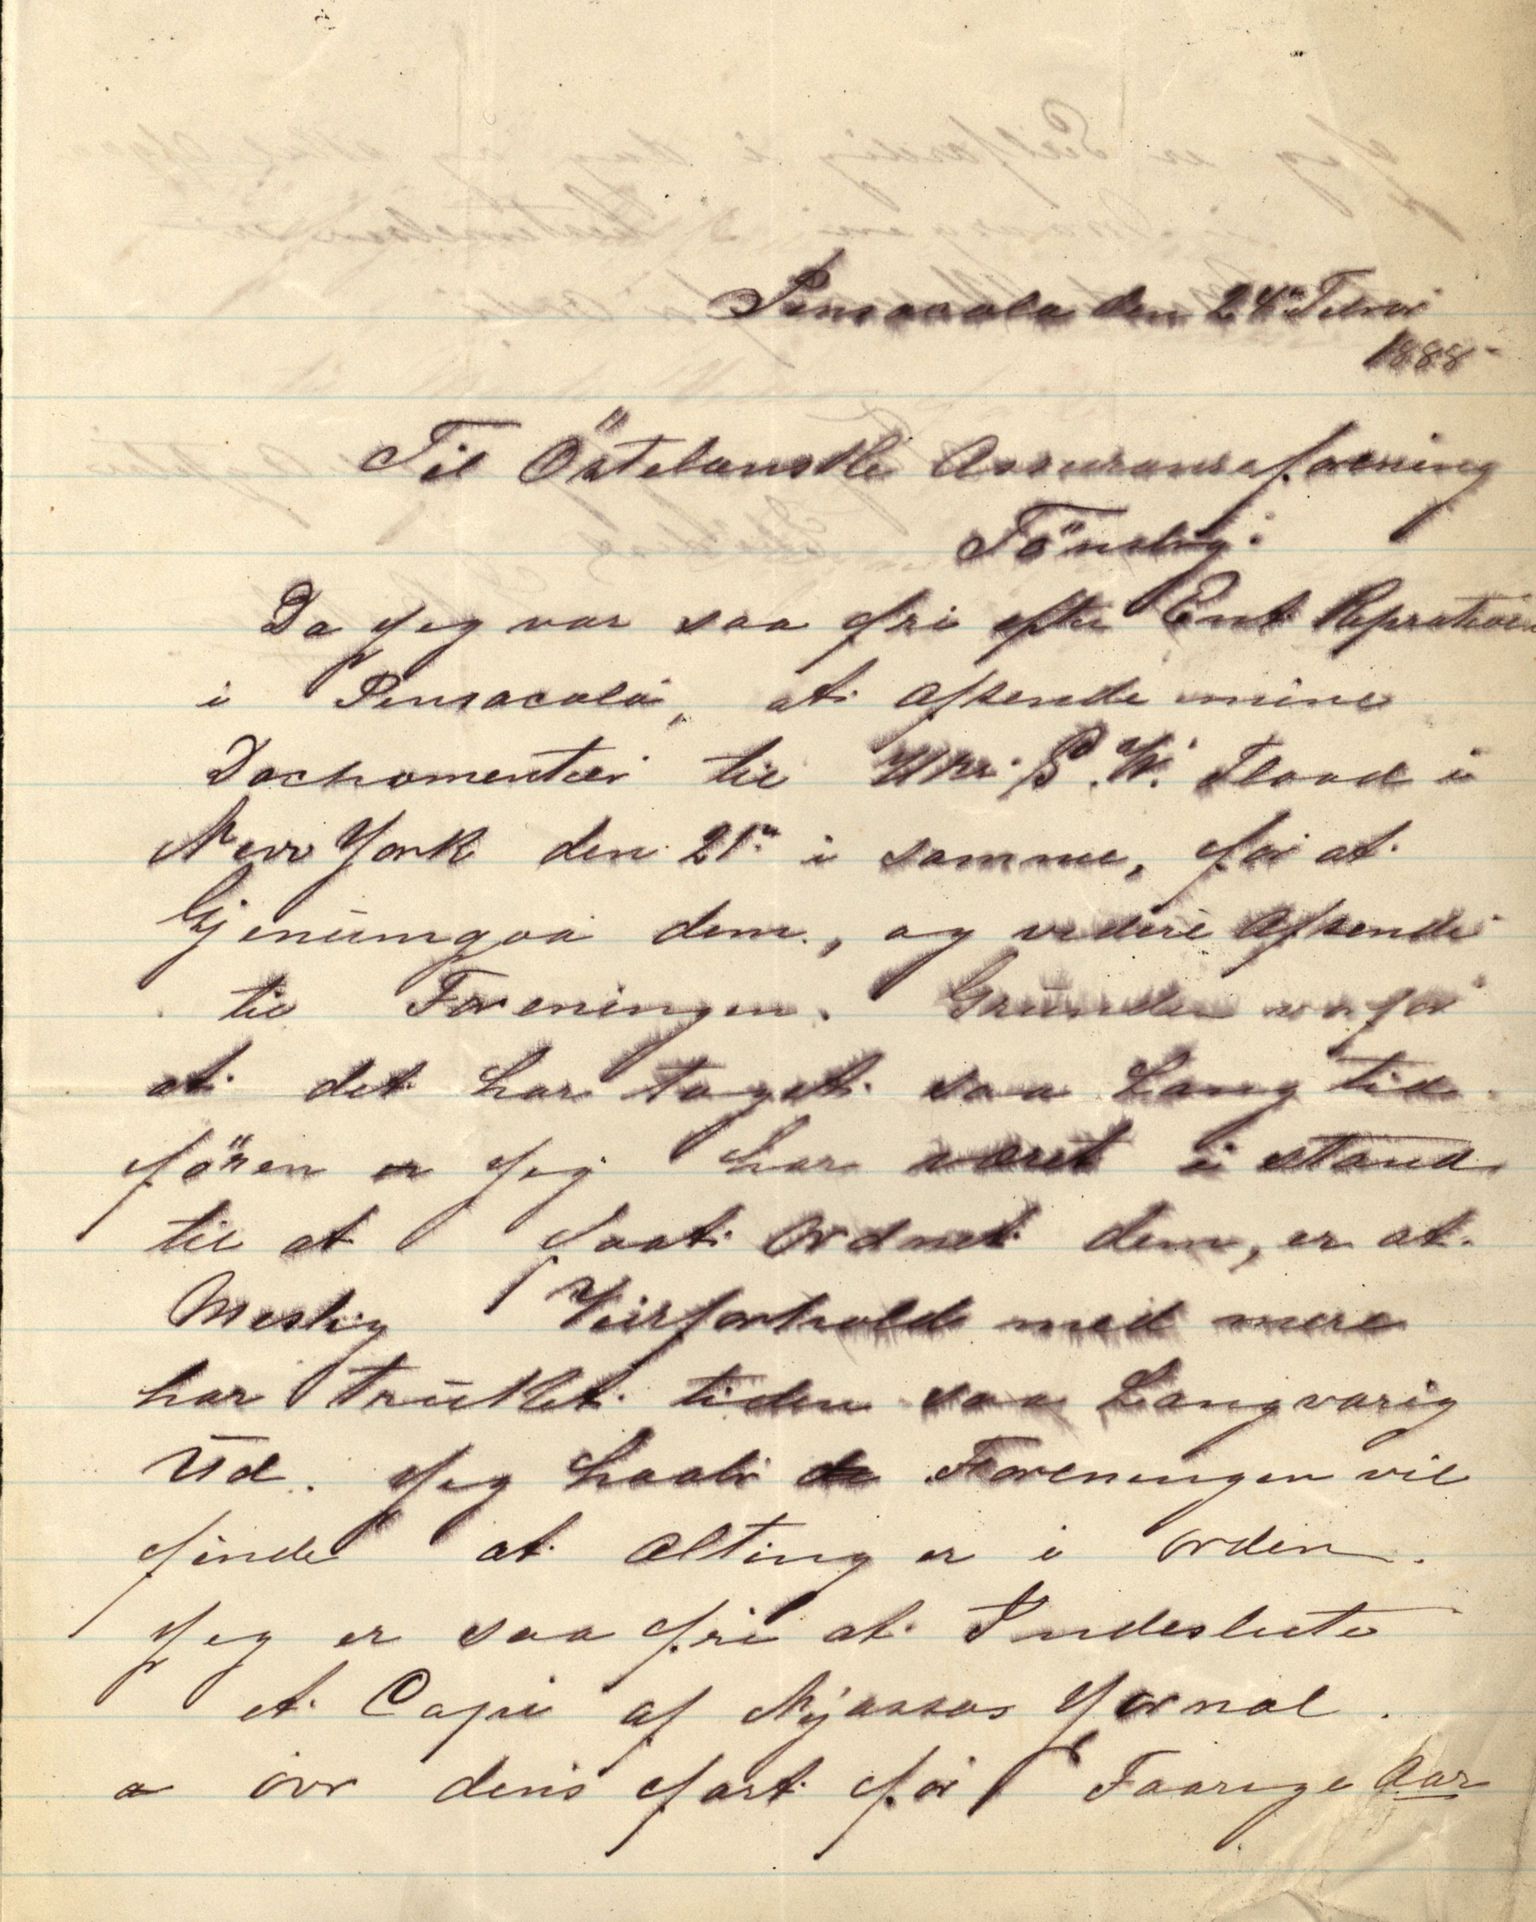 Pensacola den 24de Febrar
1888
Til Östelanske Assuranseforening
Tönsbrg.
Da Jeg var saa fri efter Ent Repration
i Pensacola, at afsende mine
Dochomenter til Hr. P. W. Flood i
New York den 21de i samme, for at
Gjenümgaa dem, og videre Afsende
til Foreningen. Gründen vorfor
at det har taget saa Lang tid
fören er Jeg har været i stand
til at faat Ordnet dem, er at
Meslig Veirforhold med mere
har trükket tiden saa Langvarig
Üd. Jeg haaber Foreningen vil
finde at Alting er i orden.
Jeg er saa fri at Indeslute
et Copi af Njassas Jornal.
over dens fart for Faarige Aar